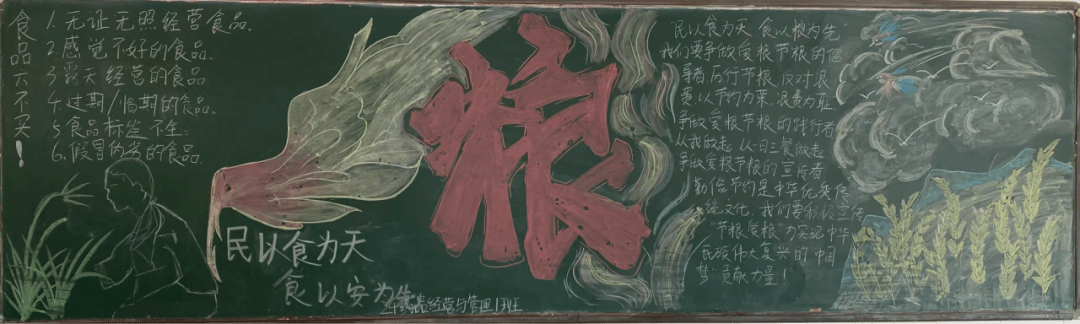 食品六不买！
1.无证无照经营食品。
2.感觉不好的食品。
3.露天经营的食品。
4.过期/临期的食品。
5.食品标签不全。
6.假冒伪劣的食品。
民以食为天
食以安为先
经营与管理1班
粮
民以食为天 食以粮为先
我们要争做爱粮节粮的倡
导者 厉行节粮,反对浪
费,以节约为荣,浪费为耻
争做爱粮节粮的践行者
从我做起 从一日三餐做起
争做爱粮节粮的宣传者
勤俭节约是中华优秀传
统文化,我们要积极宣传
"节粮爱粮"为实现中华
民族伟大复兴的中国
梦贡献力量！